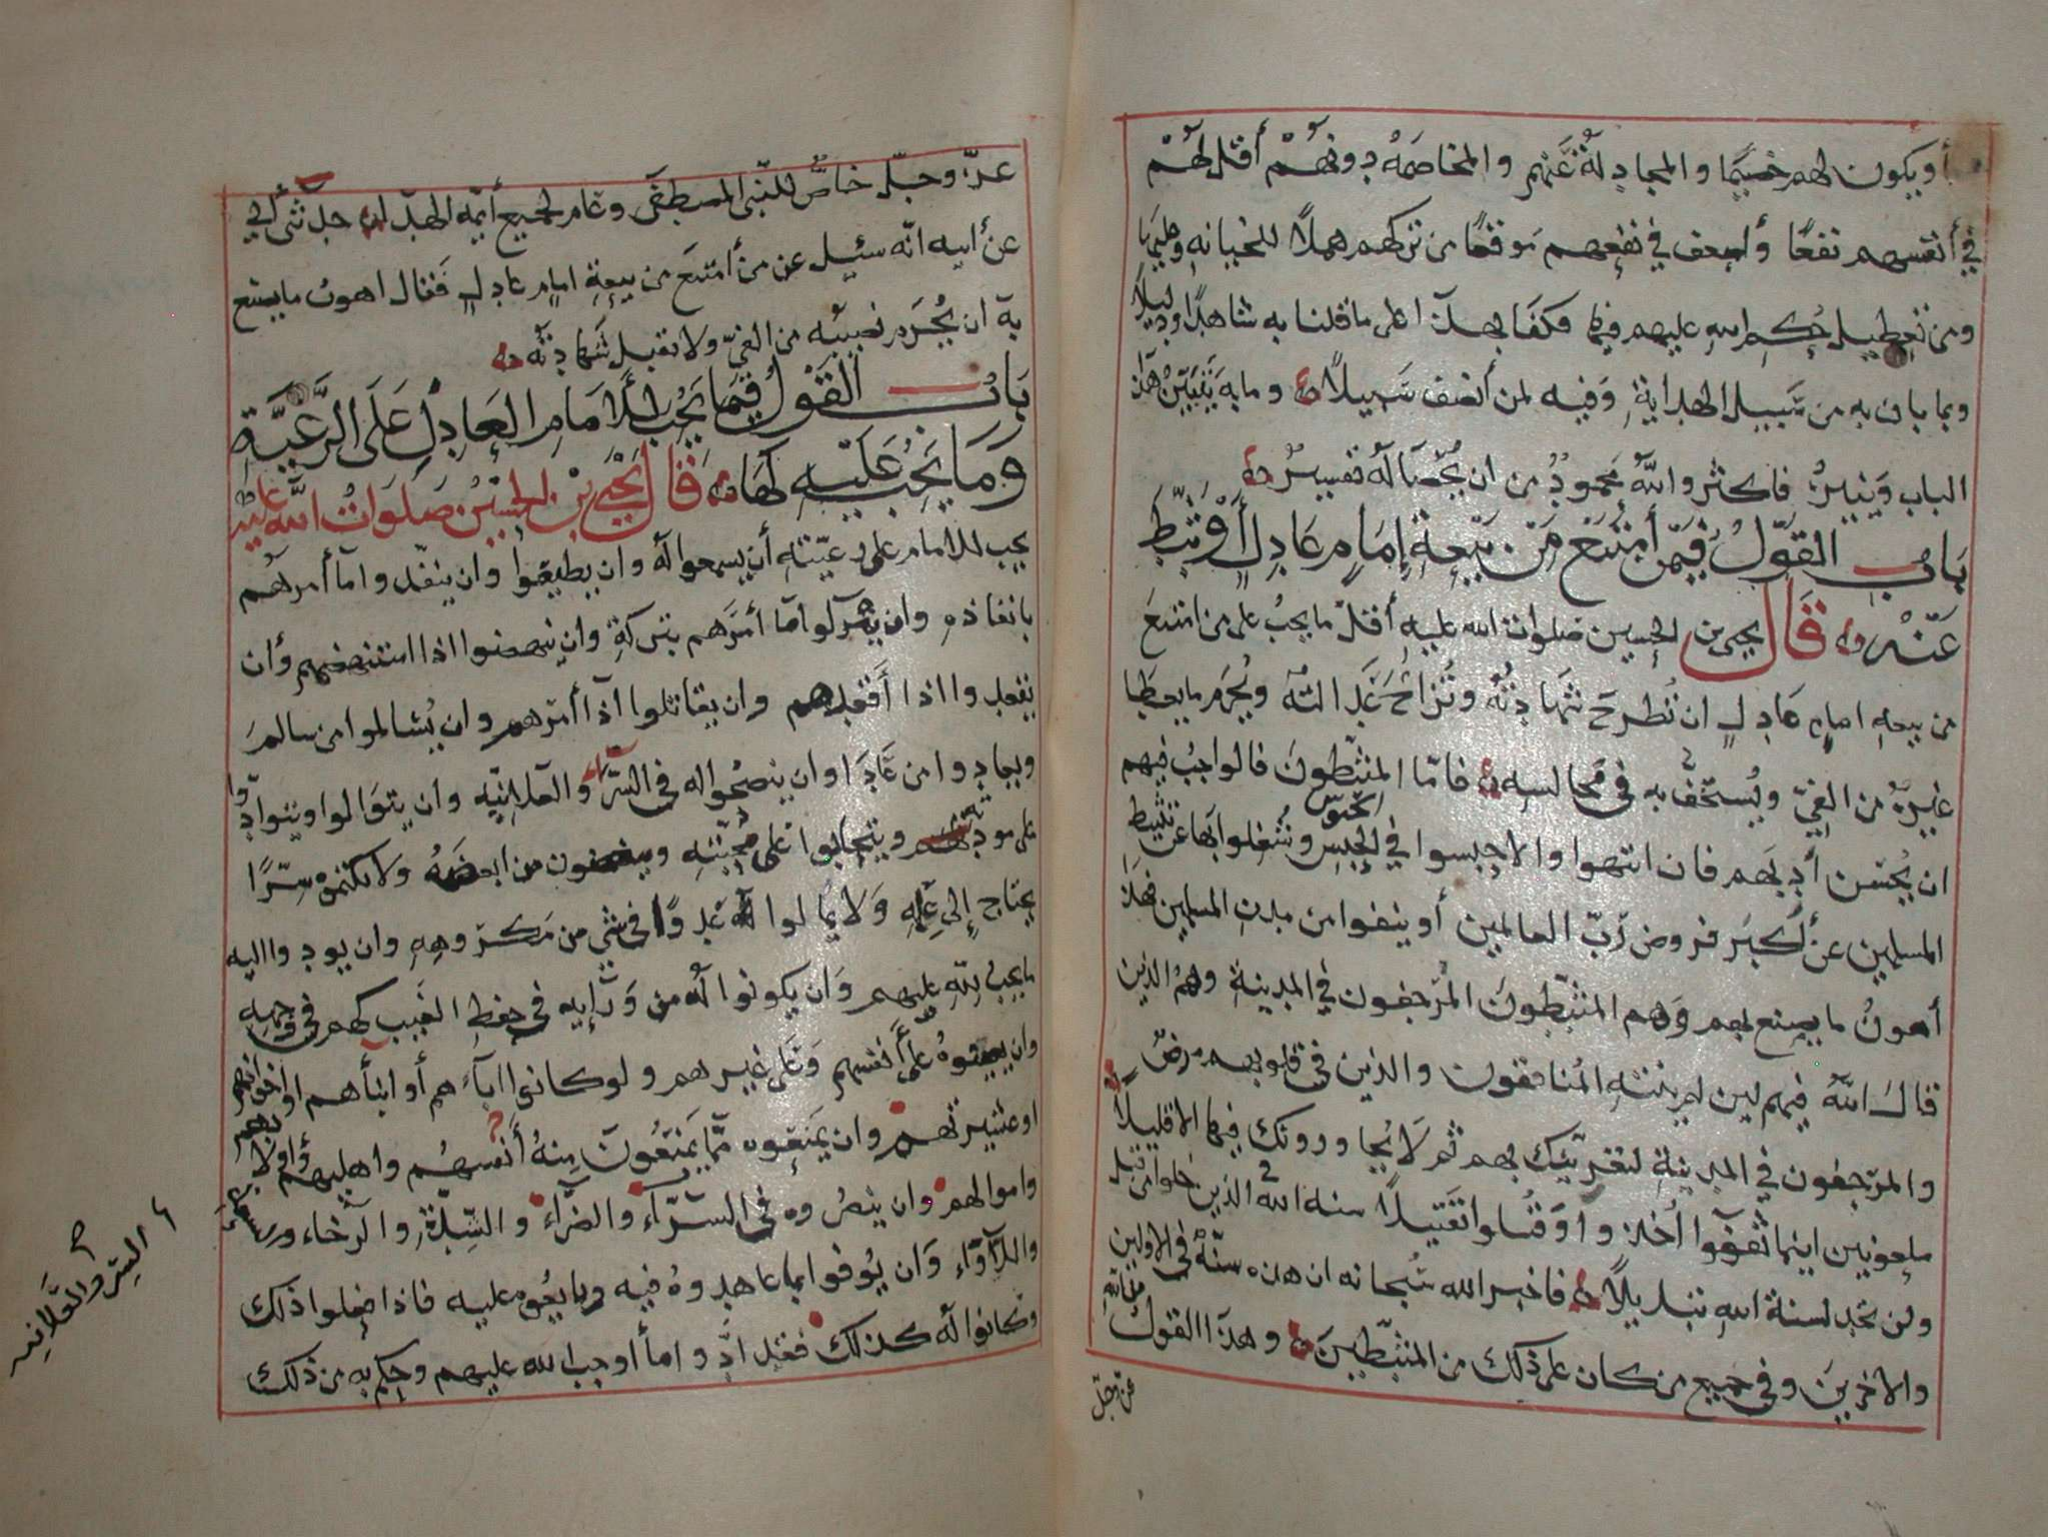 أو يكون لهم خصيمًا والمجادلة عنهم والمخاصمة دونهم أقل لهم
في أنفسهم نفعًا وأضعف في نفعهم موقعًا من تركهم هملًا للخيانة
ومن تعطيل حكم الله عليهم فيها فكفا بهذا على ما قلنا به شاهدًا ودليلًا
وبما بان به من سبيل الهداية وفيه لمن أنصف سبيلًا وما به يتبين هذا
الباب وينير فاكثر والله محمود من ان يحصا له تفسير
باب القول فيمن أمتنع من بيعة إمام عادل أو ثبط
عنه قال يحيى بن الحسين صلوات الله عليه أقل ما يجب على من امتنع
من بيعة امام عادل ان تطرح شهادته وتزاح عدالته ويحرم ما يعطا
غيره من الفيء ويستخف به في مجالسه فامّا المثبّطون فالواجب فيهم
ان يحسن أدبهم فان انتهوا والا حبسوا في الحبس وشغلوا بها عن تثبيط
المسلمين عن أكبر فروض ربّ العالمين أو ينفوا من مدن المسلمين فهذا
أهون ما يصنع بهم وهم المثبّطون المرجفون في المدينة وهم الذين
قال الله فيهم لين لم ينته المنافقون والذين في قلوبهم مرض
والمرجفون في المدينة لنغرينّك بهم ثم لا يجاورونك فيها الا قليلًا
ملعونين اينما ثقفوا أخذوا وقتلوا تقتيلًا سنة الله في الذين خلوا من قبل
ولن تجد لسنة الله تبديلًا فاخبر الله سبحانه ان هذه سنّة في الاولين
والاخرين وفي جميع من كان على ذلك من المثبّطين وهذا القول من الله
عزّ وجلّ
عزّ وجلّ خاصّ للنبي المصطفى وعام لجميع أيمة الهدا حدثني أبي
عن أبيه انّه سئيل عن من أمتنع من بيعة امام عادل فقال اهون ما يصنع
به ان يحرم نصيبه من الفيّ ولا تقبل شهادته
باب القول فيما يجب للأمام العادل على الرّعيّة
وما يجب عليه لها قال يحيى بن الحسين صلوات الله عليه
يجب للامام على رعيّته أن يسمعوا له وان يطيعوا وان ينفذوا ما أمرهم
بانفاذه وان يتركوا ما أمرهم بتركه وان ينهضوا اذا استنهضهم وأن
يقعدوا اذا أقعدهم وان يقاتلوا اذا أمرهم وان يسالموا من سالم
ويعادوا من عادا وان ينصحوا له في السر والعلانية وان يتوالوا ويتوادوا
على مودته ويتحابوا على محبّته ويبغضون من ابغضه ولا يكتموه سرًّا
يحتاج إلى علمه ولا يمالوا له عدوًا في شي من مكروهه وان يودوا اليه
ما يجب لله عليهم وان يكونوا له من ورايه في حفظ الغيب كهم في وجهه
وان يعينوه على أنفسهم وعلى غيرهم ولو كانوا اباءهم أو ابناءهم او اخوانهم
او عشيرتهم وان يمنعوه ممّا يمنعون منه أنفسهم واهليهم وأولادهم
واموالهم وان ينصروه في السرّاء والضرّاء والشدّة والرّخاء
واللأواء وان يوفوا بما عاهدوه فيه وبايعوه عليه فاذا فعلوا ذلك
وكانوا له كذلك فقد ادّوا ما أوجب الله عليهم وحكم به من ذلك
السر والعلانيه